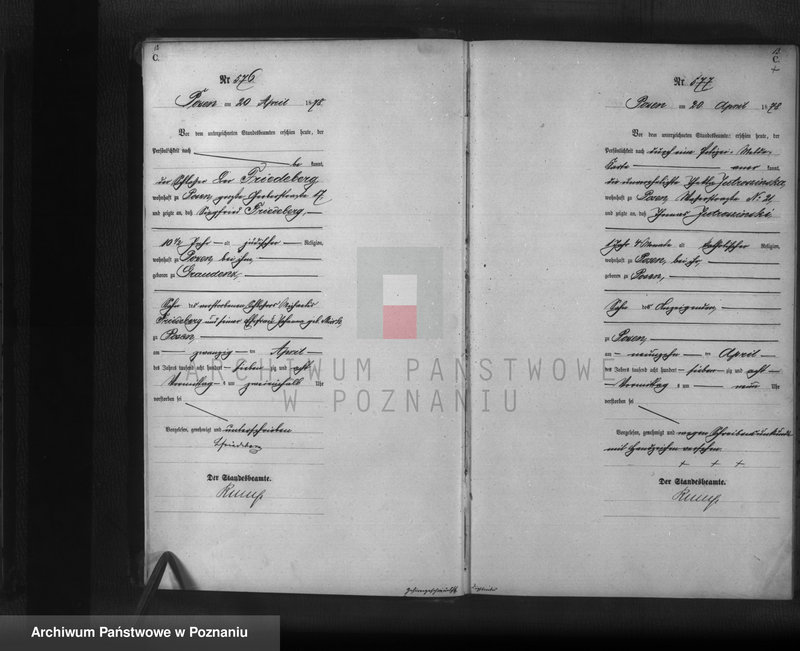 C.
Nr 576
Posen am 20 April 1878
Vor dem unterzeichneten Standesbeamten erschien heute, der
Persönlichkeit nach
be kannt,
der Schlosser Friedeberg
wohnhaft zu Posen, große Gerberstraße 17
und zeigte an, daß Siegfried Friedeberg,
10 Jahr alt jüdischer Religion,
wohnhaft zu Posen, bei ihm,
geboren zu Graudenz,
Sohn des verstorbenen Schlossers Michaelis
Friedeberg und seiner Ehefrau Johanna geb.
zu Posen,
am zwanzig ten April
des Jahres tausend acht hundert sieben zig und acht
Vormittag s um Uhr
verstorben sei
Vorgelesen, genehmigt und unterschrieben
Friedeberg
Der Standesbeamte.
C.
Nr 577
Posen am 20 April 1878
Vor dem unterzeichneten Standesbeamten erschien heute, der
Persönlichkeit nach durch eine Polizei-Melde-
Karte aner kannt,
die unverehelichte Jedroszinska,
wohnhaft zu Posen, No. 21
und zeigte an, daß Jedroszinski
1 Jahr 4 Monate alt katholischer Religion,
wohnhaft zu Posen, bei ihr,
geboren zu Posen,
Sohn der Anzeigenden,
zu Posen,
am neunzehn ten April
des Jahres tausend acht hundert sieben zig und acht
Vormittag s um neun Uhr
verstorben sei
Vorgelesen, genehmigt und wegen Schreibensunkunde
mit Handzeichen versehen.
+ + +
Der Standesbeamte.
ARCHIWUM PAŃSTWOWE
W POZNANIU
Archiwum Państwowe w Poznaniu